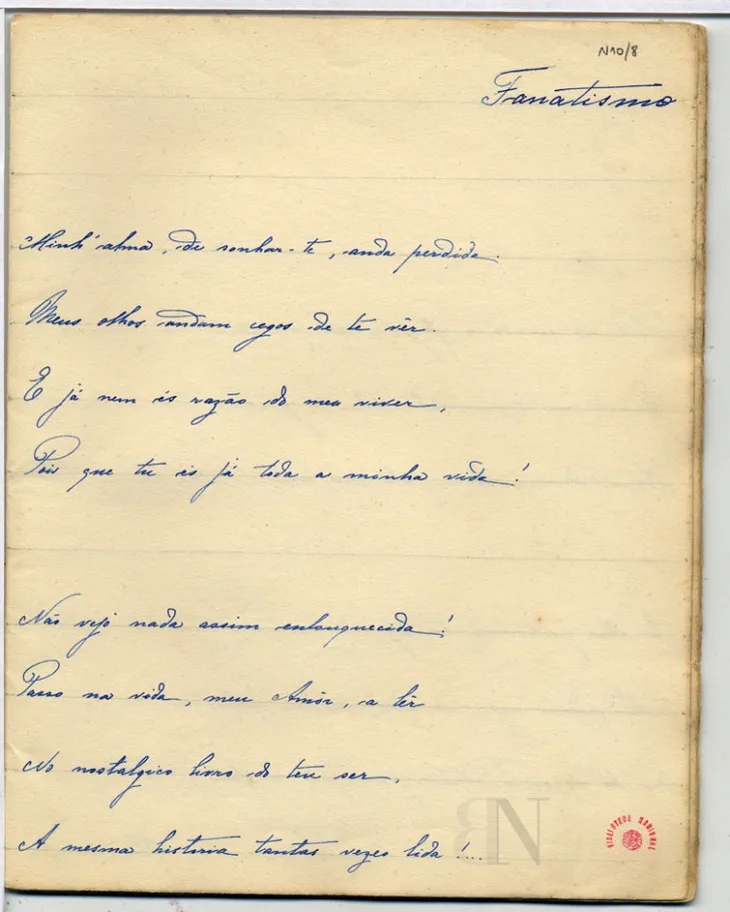 N10/8
Fanatismo
Minh'alma, de sonhar-te, anda perdida.
Meus olhos andam cegos de te vêr.
E já nem és razão do meu viver,
Pois que tu és já toda a minha vida!
Não vejo nada assim enlouquecida!
Passo na vida, meu Amôr, a lêr
No nostalgico livro do teu ser,
A mesma historia tantas vezes lida!...
BN
BIBLIOTECA NACIONAL